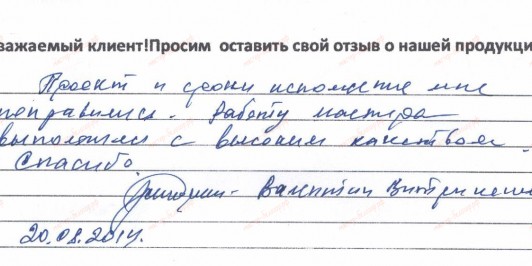 важаемый клиент!Просим оставить свой отзыв о нашей продукци
Проект и сроки исполнение мне
понравились. Работу мастера
выполнились с высоким качеством.
Спасибо.
Валентин
20.08.2014.